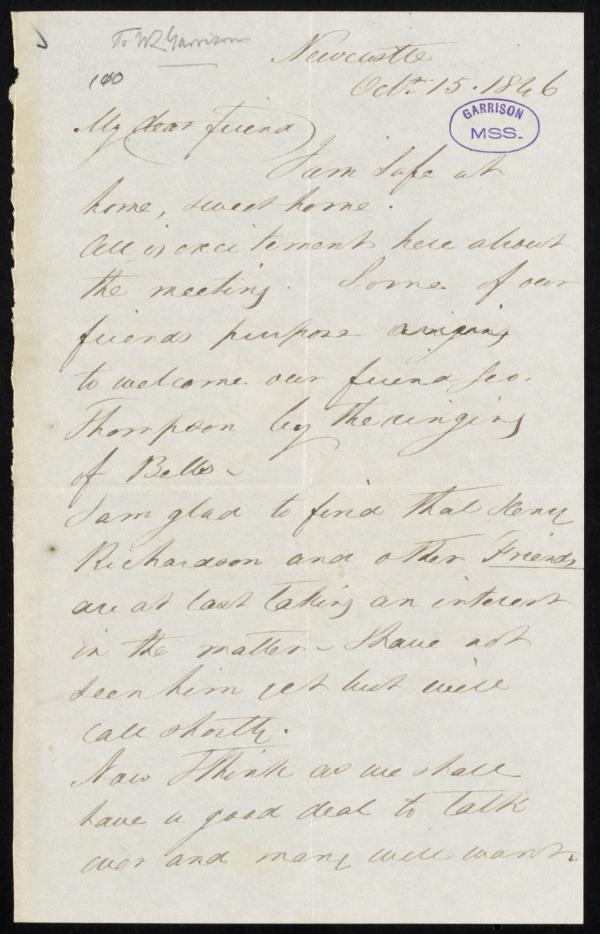 To W.L. Garrison
100
Newcastle
Octr. 15. 1846
GARRISON
MSS.
My dear friend
I am safe at
home, sweet home.
All is excitement here about
the meeting. Some of our
friends purpose
to welcome our friend Geo.
Thompson by the ringing
of Bells -
I am glad to find that Henry
Richardson and other Friends
are at last taking an interest
in the matter - I have not
seen him yet but will
call shortly.
Now I think as we shall
have a good deal to talk
over and many will want